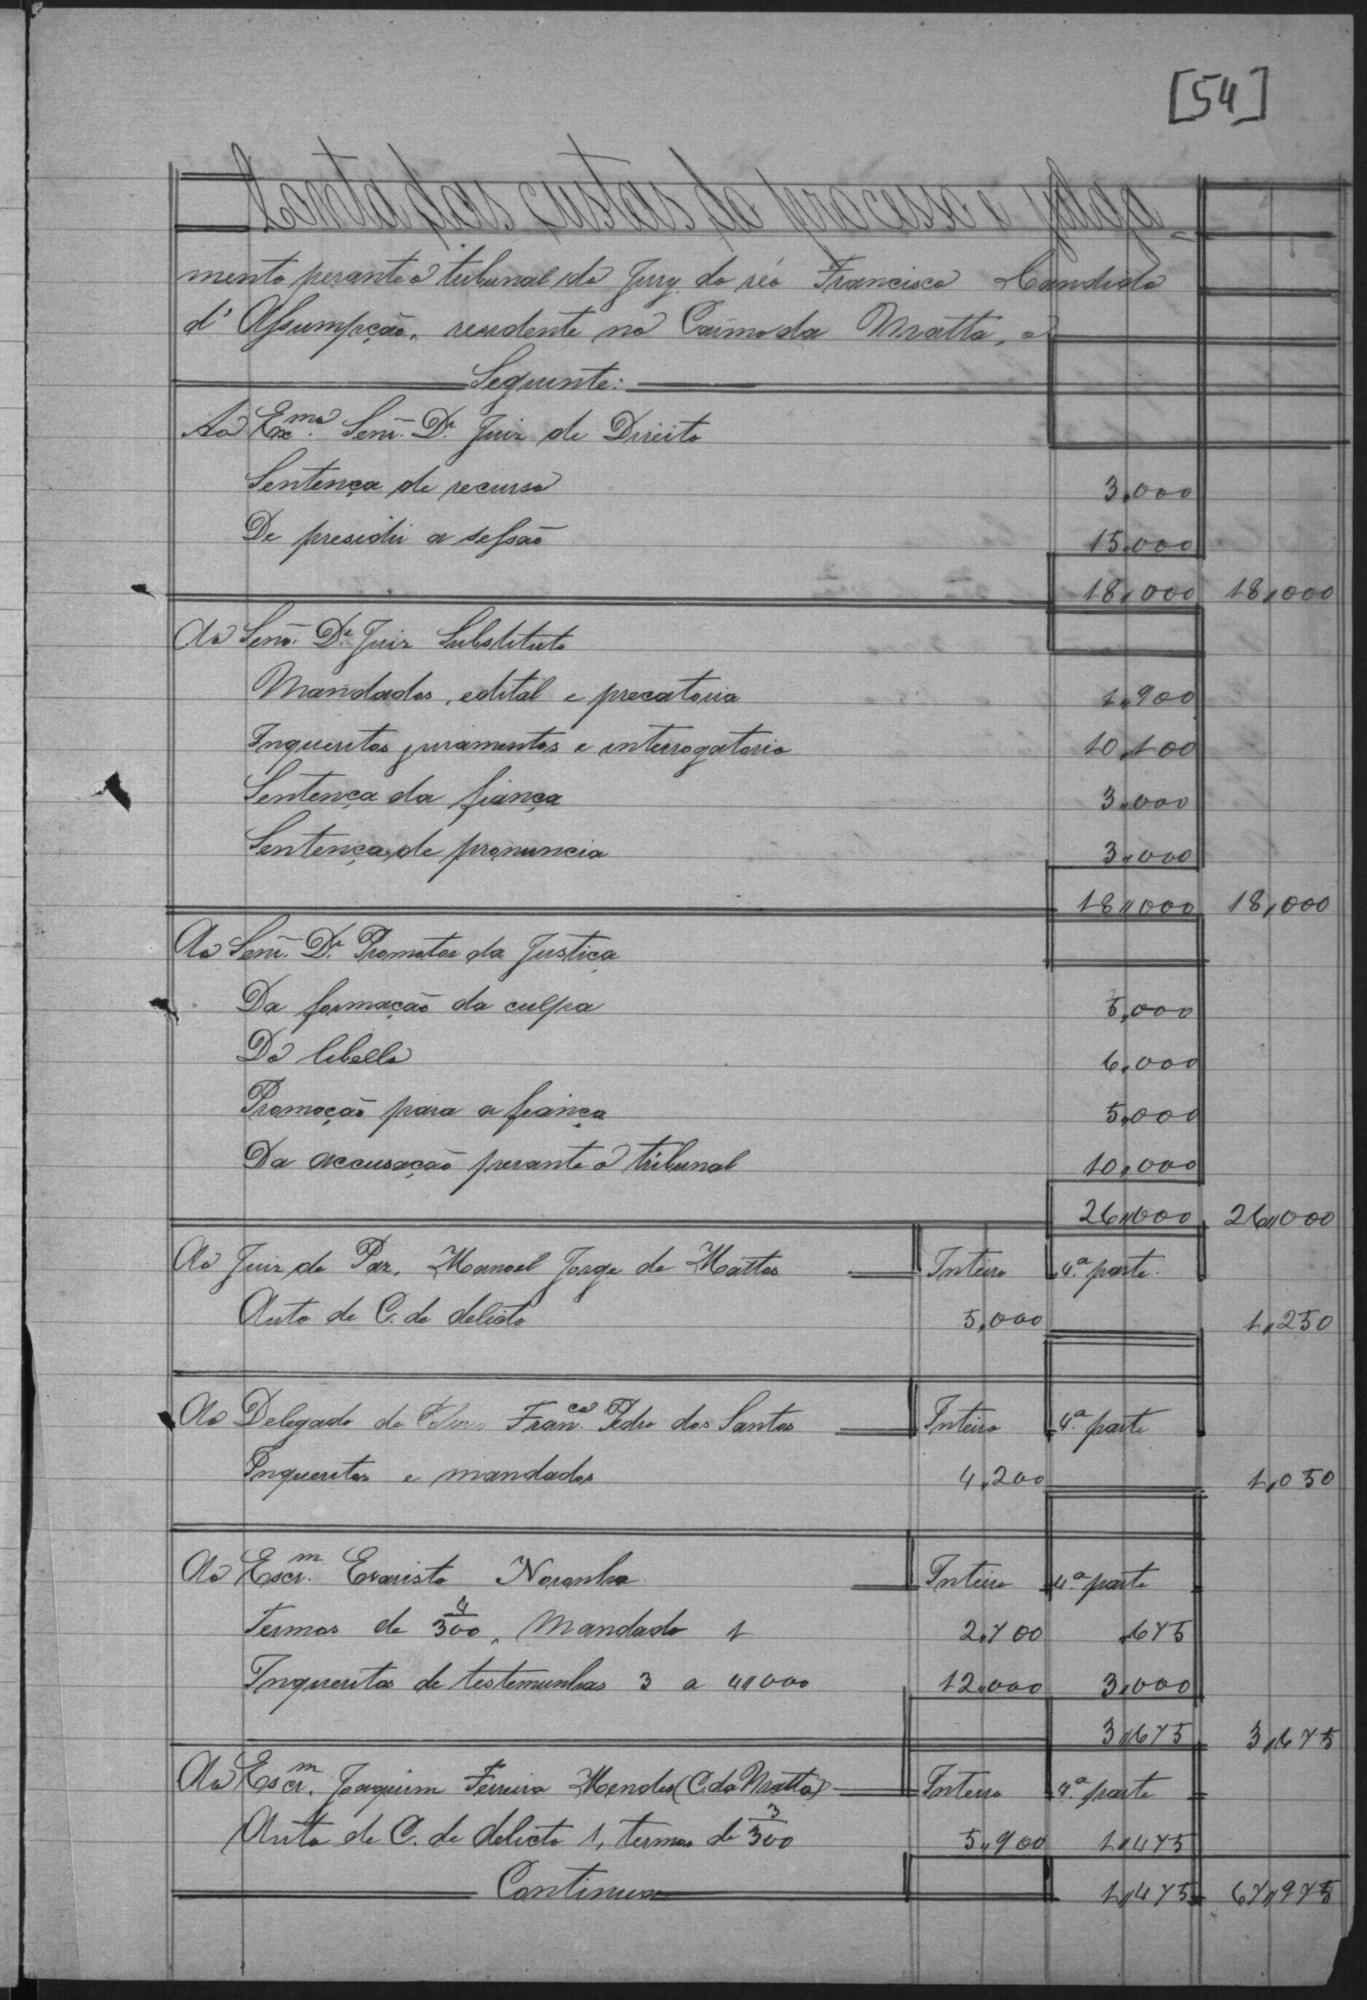 [54]
Conta das custas do processo e julga-
mento perante o tribunal do Jury do réo Francisco Candido
d'Assumpção, residente no Carmo da Matta, o
Seguinte:
Ao Exmo. Senr. Dr. Juiz de Direito
Sentença de recurso 3,000
De presidir a sessão 15,000
18,000 18,000
Ao Senr. Dr. Juiz Substituto
Mandados, edital e precatoria 1,900
Inqueritos juramentos e interrogatorio 10,100
Sentença da fiança 3,000
Sentença de pronuncia 3,000
18,000 18,000
Ao Senr. Dr. Promotor da Justiça
Da formação da culpa 5,000
Do libello 6,000
Promoção para a fiança 5,000
Da accusação perante o tribunal 10,000
26,000 26,000
Ao Juiz de Paz, Manoel Jorge de Mattos Inteiro 4ª parte
Auto de C. de delicto 5,000 1,250
Ao Delegado de Franco. Pedro dos Santos Inteiro 4ª parte
Inqueritos e mandados 4,200 1,050
Ao Escrm. Evaristo Noronha Inteiro 4ª parte
Termos de 4/300, Mandado 1 2,700 ,675
Inqueritos de testemunhas 3 a 4,000 12,000 3,000
3,675 3,675
Ao Escrm. Joaquim Ferreira Mendes (C. da Matta) Inteiro 4ª parte
Auto de C. de delicto 1, termos de 3/300 5,900 1,475
Continua 1,475 67,975